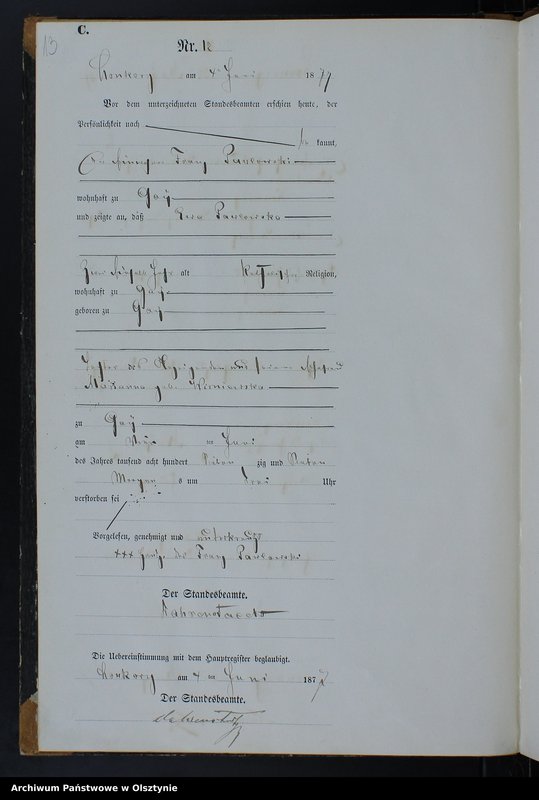 13
C.
Nr. 12
am 4 Juni 1877
Vor dem unterzeichneten Standesbeamten erschien heute, der
Persönlichkeit nach
be kannt,
Franz Pawlowski
wohnhaft zu Gay
und zeigte an, daß Ewa Pawlowska
Jahr alt katholischer Religion,
wohnhaft zu Gay
geboren zu Gay
Tochter des Anzeigenden und seiner Ehefrau
Marianna geb.
zu Gay
am Juni
des Jahres tausend acht hundert sieben zig und sieben
Morgen s um drei Uhr
verstorben sei
Vorgelesen, genehmigt und unterkreuzt
+++ des Franz Pawlowski
Der Standesbeamte.
Die Uebereinstimmung mit dem Hauptregister beglaubigt.
am 4 ten Juni 1877
Der Standesbeamte.
Archiwum Państwowe w Olsztynie